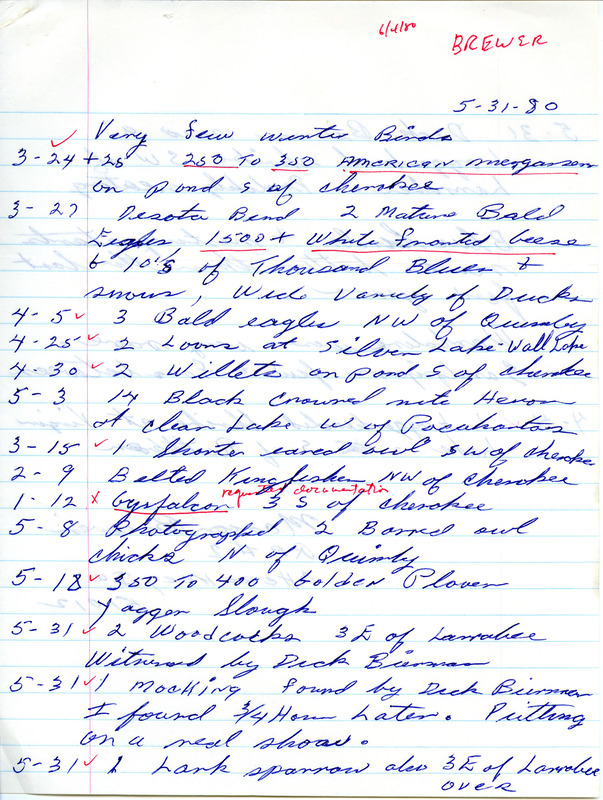 6/4/80
BREWER
5-31-80
Very few winter Birds
3-24+25 250 To 350 American mergansers
on pond S of Cherokee
3-27 Desota Bend 2 Mature Bald
Eagles 1500+ White fronted Geese
& 10's of Thousand Blues &
snows, Wide Variety of Ducks
4-5 ✓ 3 Bald eagles NW of Quimby
4-25 ✓ 2 Loons at Silver Lake - Wall Lake
4-30 ✓ 2 Willets on pond S of cherokee
5-3 14 Black Crowned nite Heron
at clear Lake W of Pocahontas
3-15 ✓ 1 Shorter eared owl SW of cherokee
2-9 Belted Kingfisher NW of cherokee
requested documentation
1-12 x Gyrfalcon 3 S of cherokee
5-8 Photographed 2 Barred owl
chicks N of Quimby
5-18 ✓ 350 To 400 Golden Plover
Yagger Slough
5-31 ✓ 2 Woodcocks 3E of Larrabee
Witnessed by Dick Bierman
5-31 ✓ 1 Mocking found by Dick Bierman
I found 3/4 Hour Later. Putting
on a real show.
5-31 ✓ 1 Lark sparrow also 3E of Larrabee
over